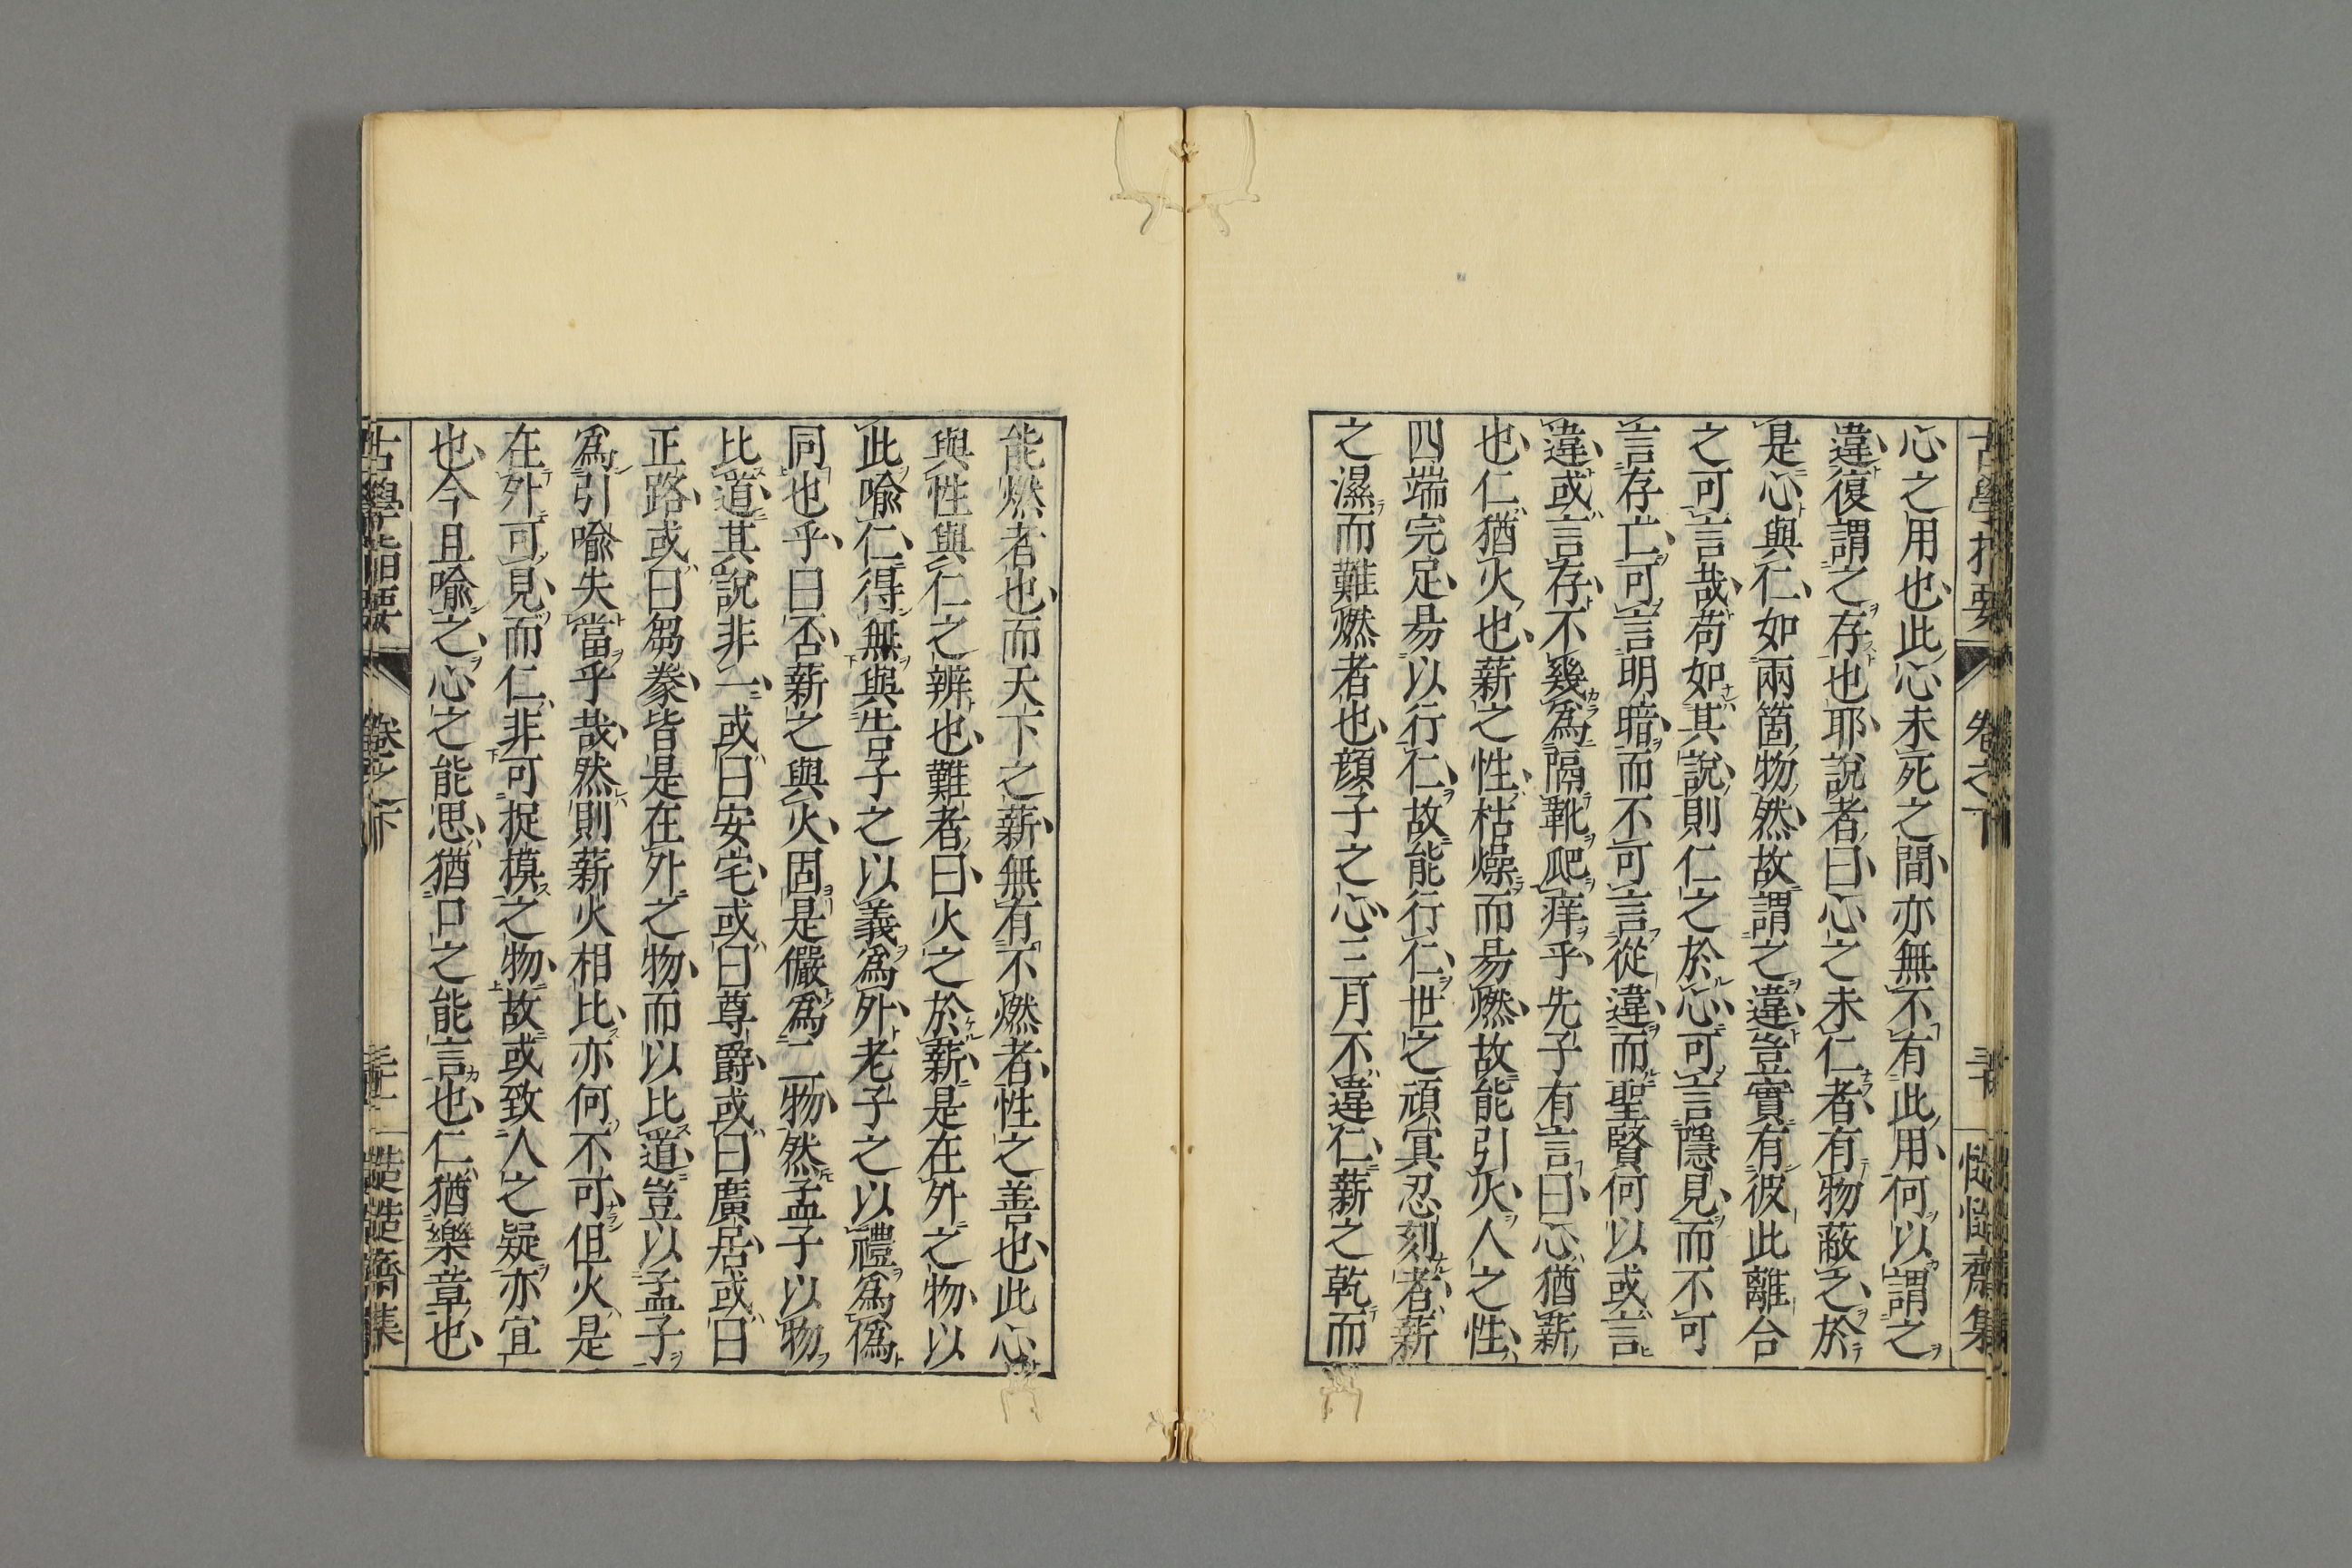 心之用也此心未死之間亦無不有此用何以謂之
違復謂之存也耶說者曰心之未仁者有物蔽之於
是心與仁如兩箇物然故謂之違豈實有彼此離合
之可言哉苟如其說則仁之於心可言隱見而不可
言存亡可言明暗而不可言從違而聖賢何以或言
違或言存不幾為隔靴爬痒乎先子有言曰心猶薪
也仁猶火也薪之性枯燥而易燃故能引火人之性
四端完足易以行仁故能行仁世之頑冥忍刻者薪
之濕而難燃者也顔子之心三月不違仁薪之乾而
能燃者也而天下之薪無有不燃者性之善也此心
與性與仁之辨也難者曰火之於薪是在外之物以
此喩仁得無與告子之以義為外老子之以禮為偽
同也乎曰否薪之與火固是儼為二物然孟子以物
比道其說非一或曰安宅或曰尊爵或曰廣居或曰
正路或曰芻豢皆是在外之物而以比道豈以孟子
為引喩失當乎哉然則薪火相比亦何不可但火是
在外可見而仁非可捉摸之物故或致人之疑亦宜
也今且喩之心之能思猶口之能言也仁猶樂章也
古學指要 卷之下